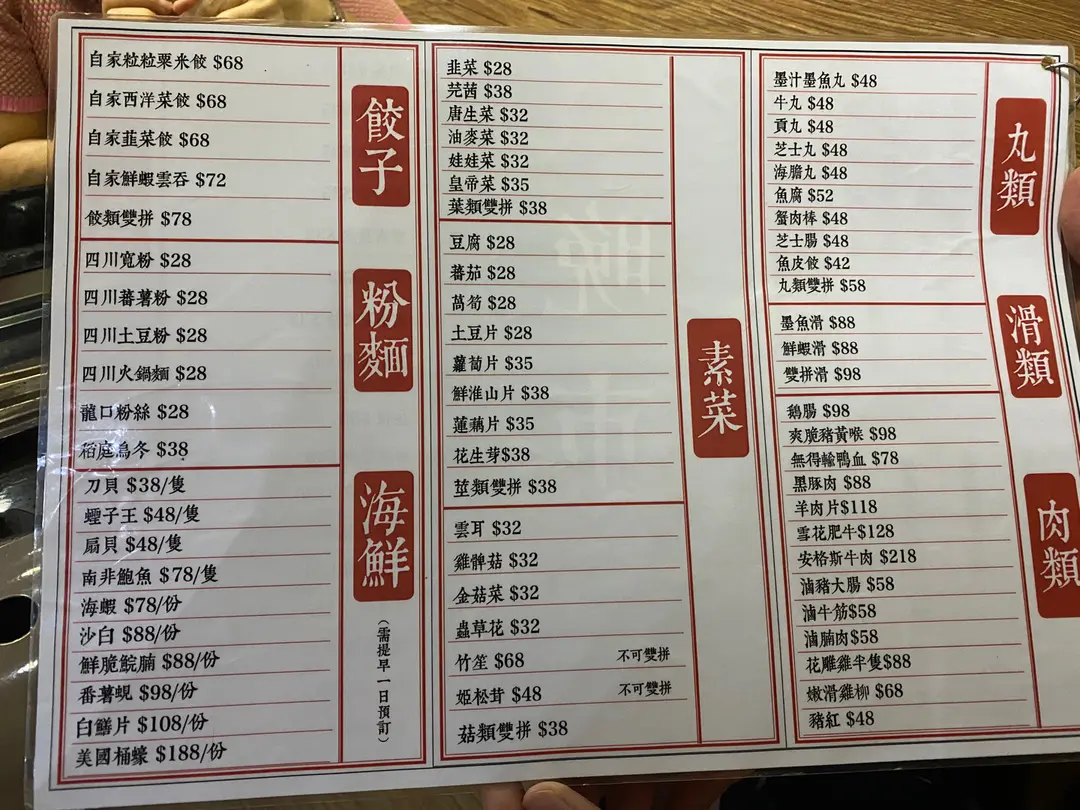 餃子
自家粒粒粟米餃 $68
自家西洋菜餃 $68
自家韮菜餃 $68
自家鮮蝦雲吞 $72
餃類雙拼 $78
粉麵
四川寬粉 $28
四川蕃薯粉 $28
四川土豆粉 $28
四川火鍋麵 $28
龍口粉絲 $28
稻庭烏冬 $38
海鮮
(需提早一日預訂)
刀貝 $38/隻
蟶子王 $48/隻
扇貝 $48/隻
南非鮑魚 $78/隻
海蝦 $78/份
沙白 $88/份
鮮脆鯇腩 $88/份
番薯蜆 $98/份
白鱔片 $108/份
美國桶蠔 $188/份
素菜
韭菜 $28
芫茜 $38
唐生菜 $32
油麥菜 $32
娃娃菜 $32
皇帝菜 $35
葉類雙拼 $38
豆腐 $28
蕃茄 $28
萵筍 $28
土豆片 $28
蘿蔔片 $35
鮮淮山片 $38
蓮藕片 $35
花生芽$38
莖類雙拼 $38
雲耳 $32
雞髀菇 $32
金菇菜 $32
蟲草花 $32
竹笙 $68 不可雙拼
姬松茸 $48 不可雙拼
菇類雙拼 $38
丸類
墨汁墨魚丸 $48
牛丸 $48
貢丸 $48
芝士丸 $48
海膽丸 $48
魚腐 $52
蟹肉棒 $48
芝士腸 $48
魚皮餃 $42
丸類雙拼 $58
滑類
墨魚滑 $88
鮮蝦滑 $88
雙拼滑 $98
肉類
鵝腸 $98
爽脆豬黃喉 $98
無得輸鴨血 $78
黑豚肉 $88
羊肉片$118
雪花肥牛$128
安格斯牛肉 $218
滷豬大腸 $58
滷牛筋$58
滷腩肉$58
花雕雞半隻$88
嫩滑雞柳 $68
豬紅 $48